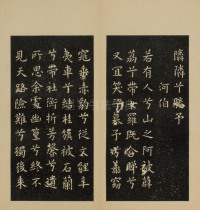 隣隣兮媵予
河伯
若有人兮山之阿被薜
荔兮帶女羅既含睇兮
又宜笑子慕予兮善窈
窕乘赤豹兮從文貍辛
夷車兮結桂旗被石蘭
兮帶杜衡折芳馨兮遺
所思余處幽篁兮終不
見天路險難兮獨後來